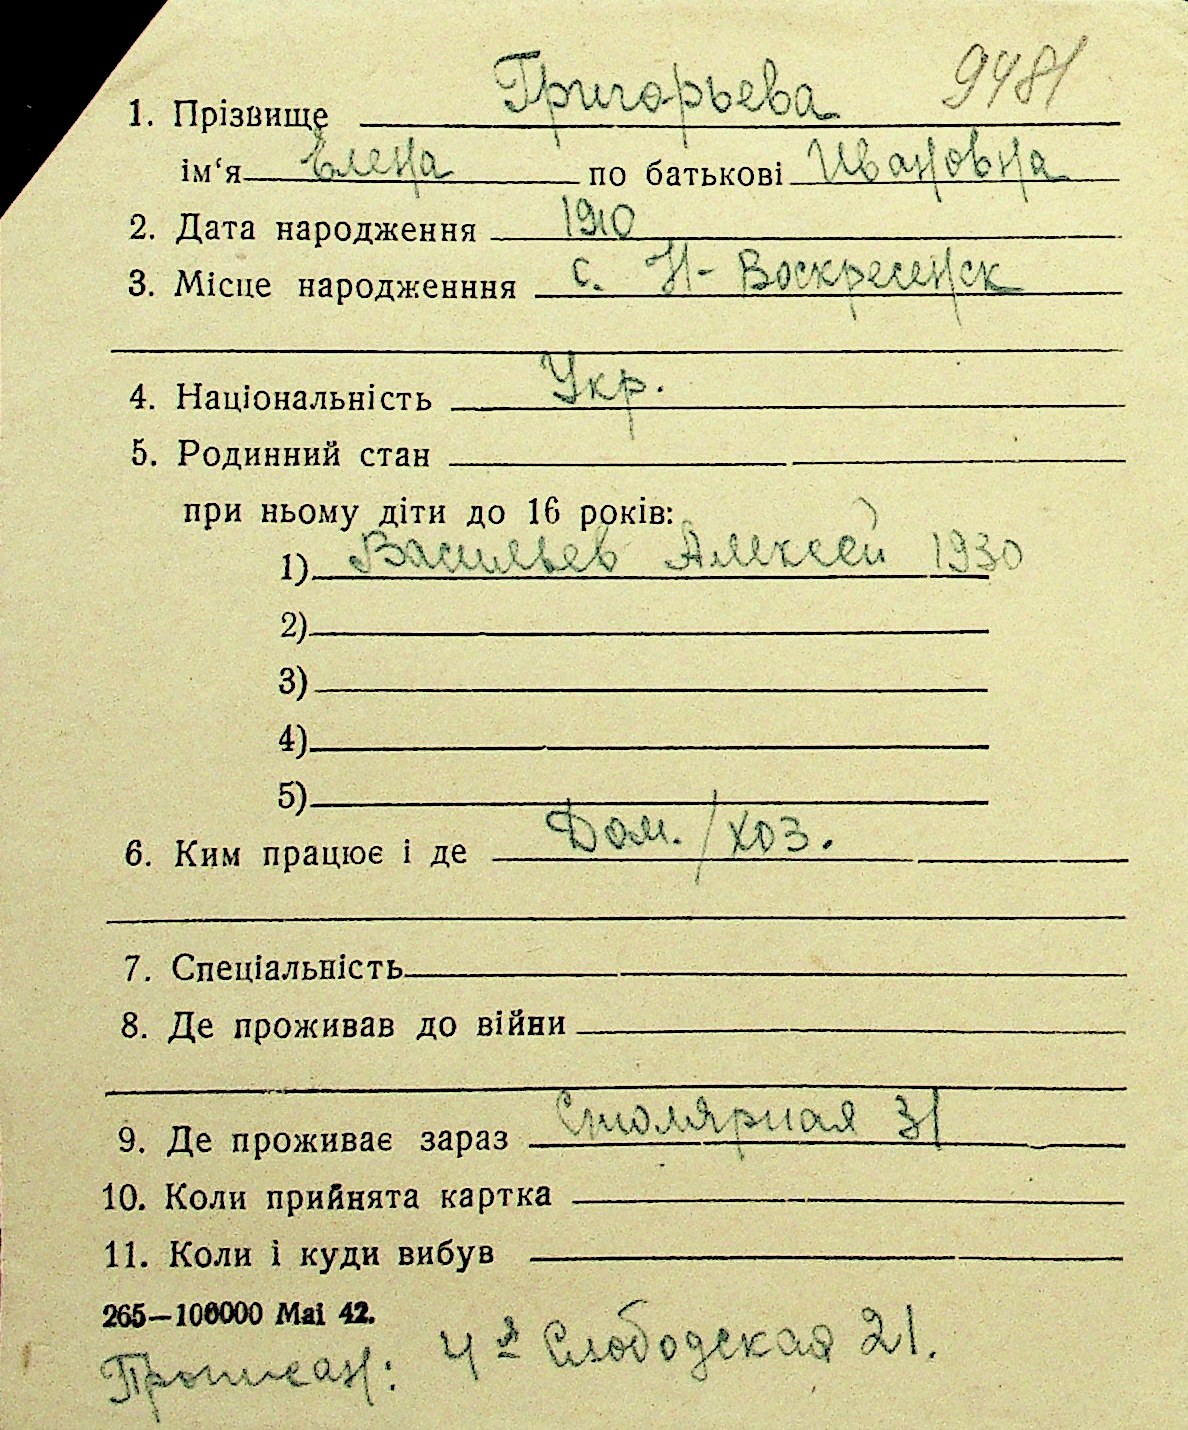 9481
1. Прізвище Григорьева
ім‘я Елена по батькові Ивановна
2. Дата народження 1910
3. Місце народженння с. Н-Воскресенск
4. Національність Укр.
5. Родинний стан
при ньому діти до 16 років:
1) Васильев Алексей 1930
2)
3)
4)
5)
6. Ким працює і де Дом./хоз.
7. Спеціальність
8. Де проживав до війни
9. Де проживає зараз Столярная 31
10. Коли прийнята картка
11. Коли і куди вибув
265—100000 Mai 42.
Прописан: 4ая Слободская 21.